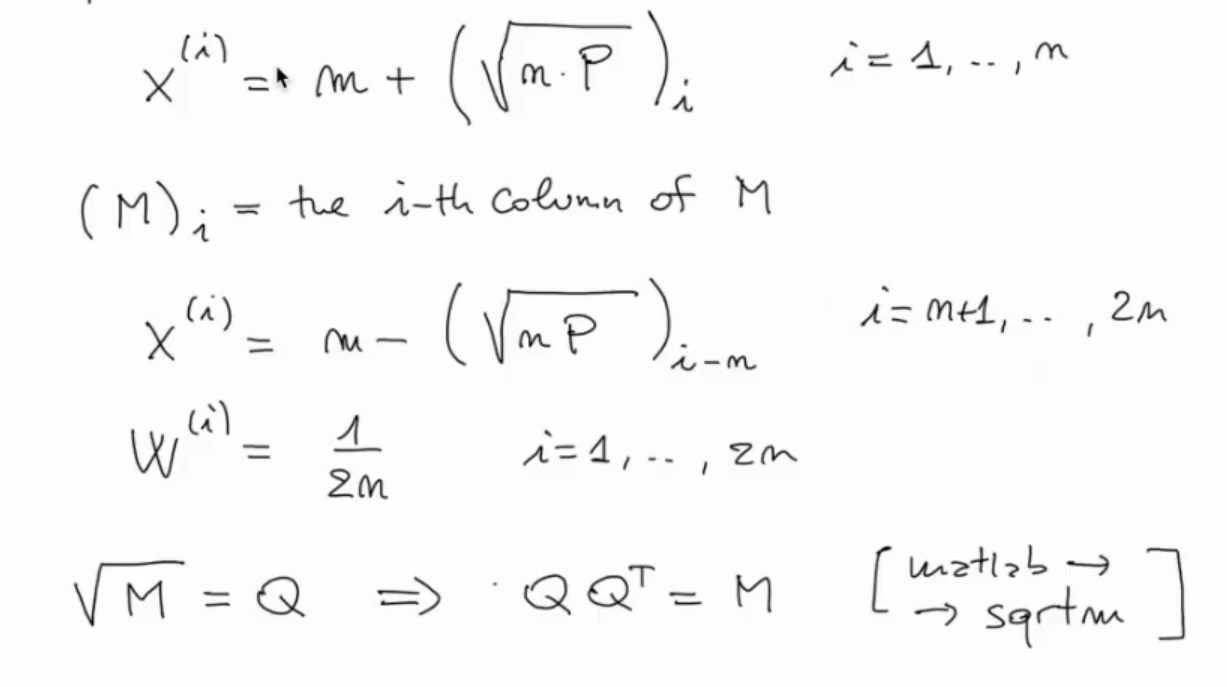 x^(i) = m + (√(n · P))_i   i = 1, .., n
(M)_i = the i-th column of M
x^(i) = m - (√(n P))_(i-n)   i = n+1, .. , 2n
W^(i) = 1/2n   i = 1, .. , 2n
√M = Q ⟹ Q Q^T = M   [matlab →
→ sqrtm]